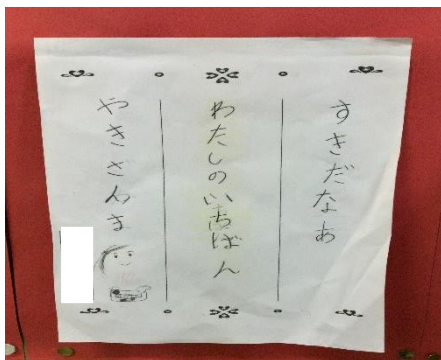 すきだなあ
わたしのいちばん
やきさんま